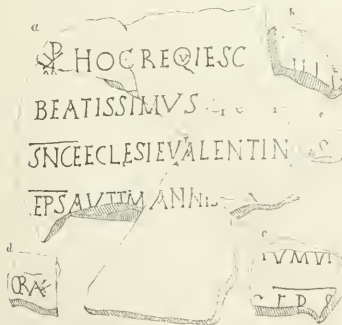 a
☧ HOC REQIESC
BEATISSIMVS
SNCE ECLESIE VALENTIN
EPS AVT TM ANNI
b
c
d
ORA
e
IVMVI